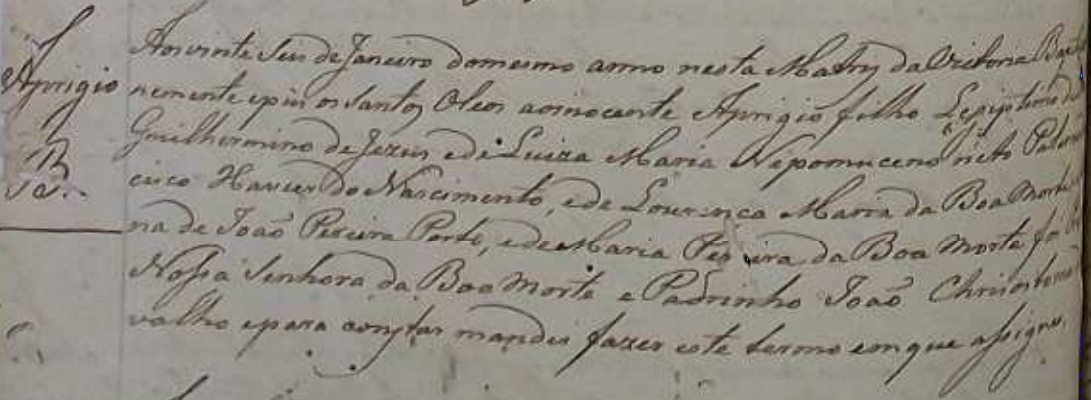 Aprigio
B
Aos vinte Seis de Janeiro do mesmo anno nesta Matriz da Victoria Bapt
nemente epus os Santos Oleos ao innocente Aprigio filho Legitimo de
Guilhermino de Jezus e de Luiza Maria Nepomuceno neto Patern
cisco Xavier do Nascimento, e de Lourença Maria da Boa Morte
na de João Pereira Porto, e de Maria Ferreira da Boa Morte foi
Nossa Senhora da Boa Morte e Padrinho João Chrisostomo
valho e para constar mandei fazer este termo em que assignei.